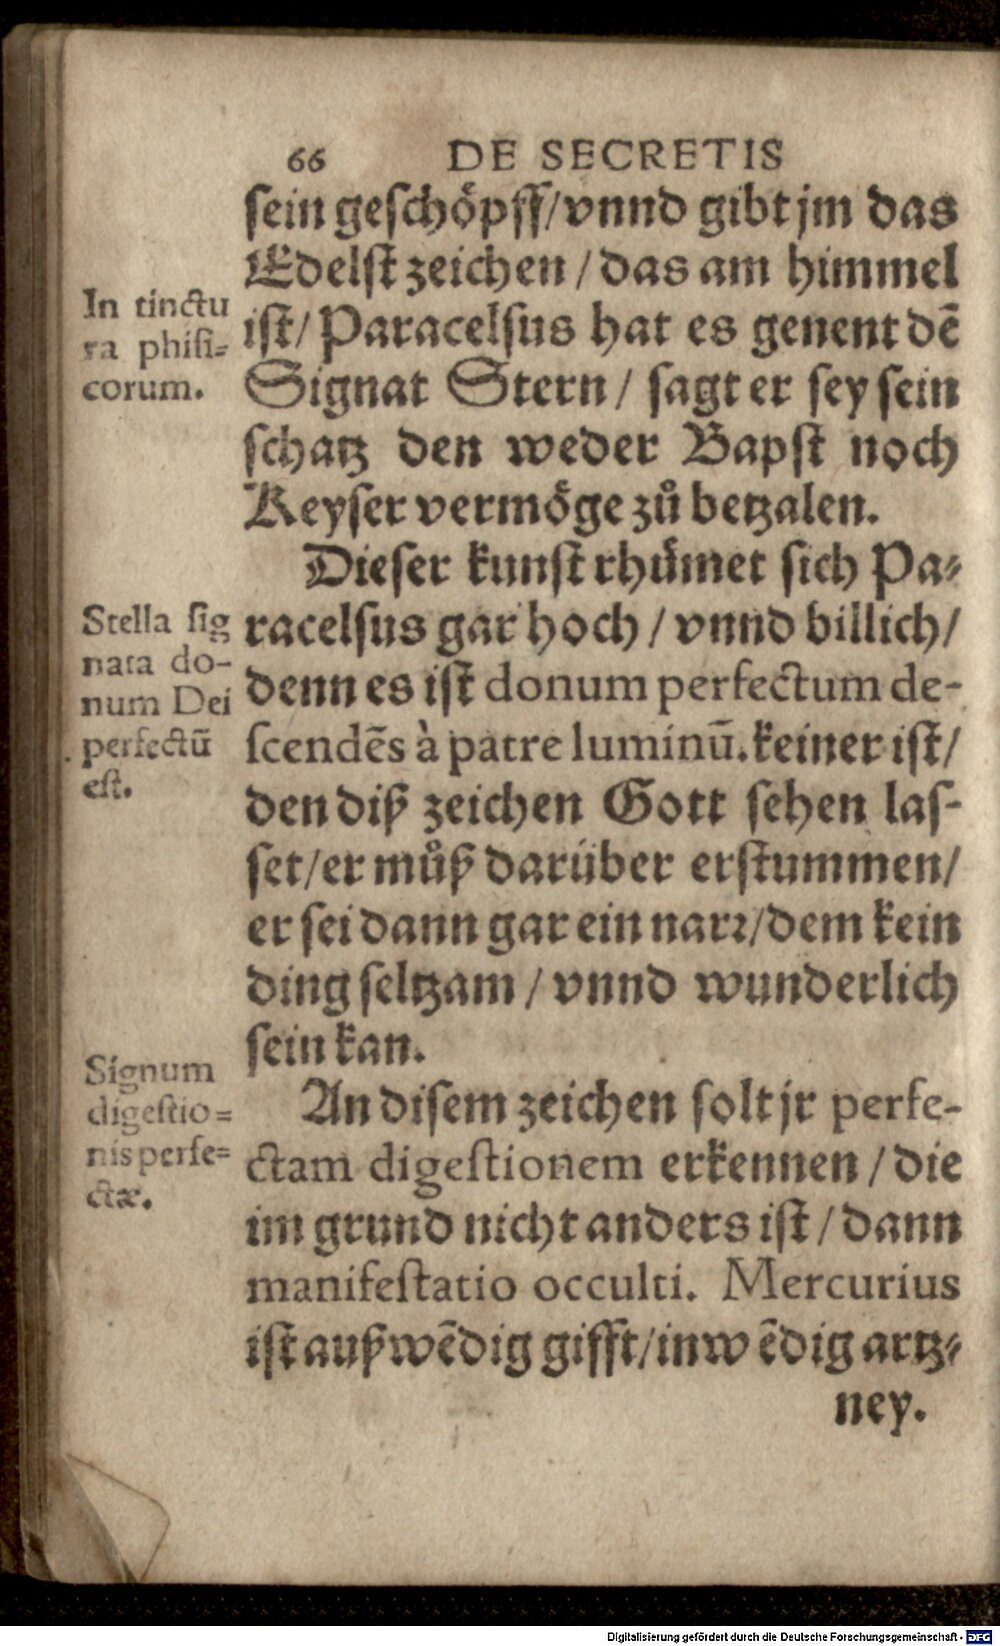 66 DE SECRETIS
sein geschöpff/vnnd gibt jm das
Edelst zeichen/das am himmel
ist/Paracelsus hat es genent dē
Signat Stern/sagt er sey sein
schatz den weder Bapst noch
Keyser vermöge zů betzalen.
Dieser kunst rhůmet sich Pa-
racelsus gar hoch/vnnd billich/
denn es ist donum perfectum de-
scendēs à patre luminū. keiner ist/
den diß zeichen Gott sehen las-
set/er můß darüber erstummen/
er sei dann gar ein narr/dem kein
ding seltzam/vnnd wunderlich
sein kan.
An disem zeichen solt jr perfe-
ctam digestionem erkennen/die
im grund nicht anders ist/dann
manifestatio occulti. Mercurius
ist außwēdig gifft/inwēdig artz-
ney.
In tinctu
ra phisi-
corum.
Stella sig
nata do-
num Dei
perfectū
est.
Signum
digestio-
nis perfe-
ctæ.
Digitalisierung gefördert durch die Deutsche Forschungsgemeinschaft - DFG